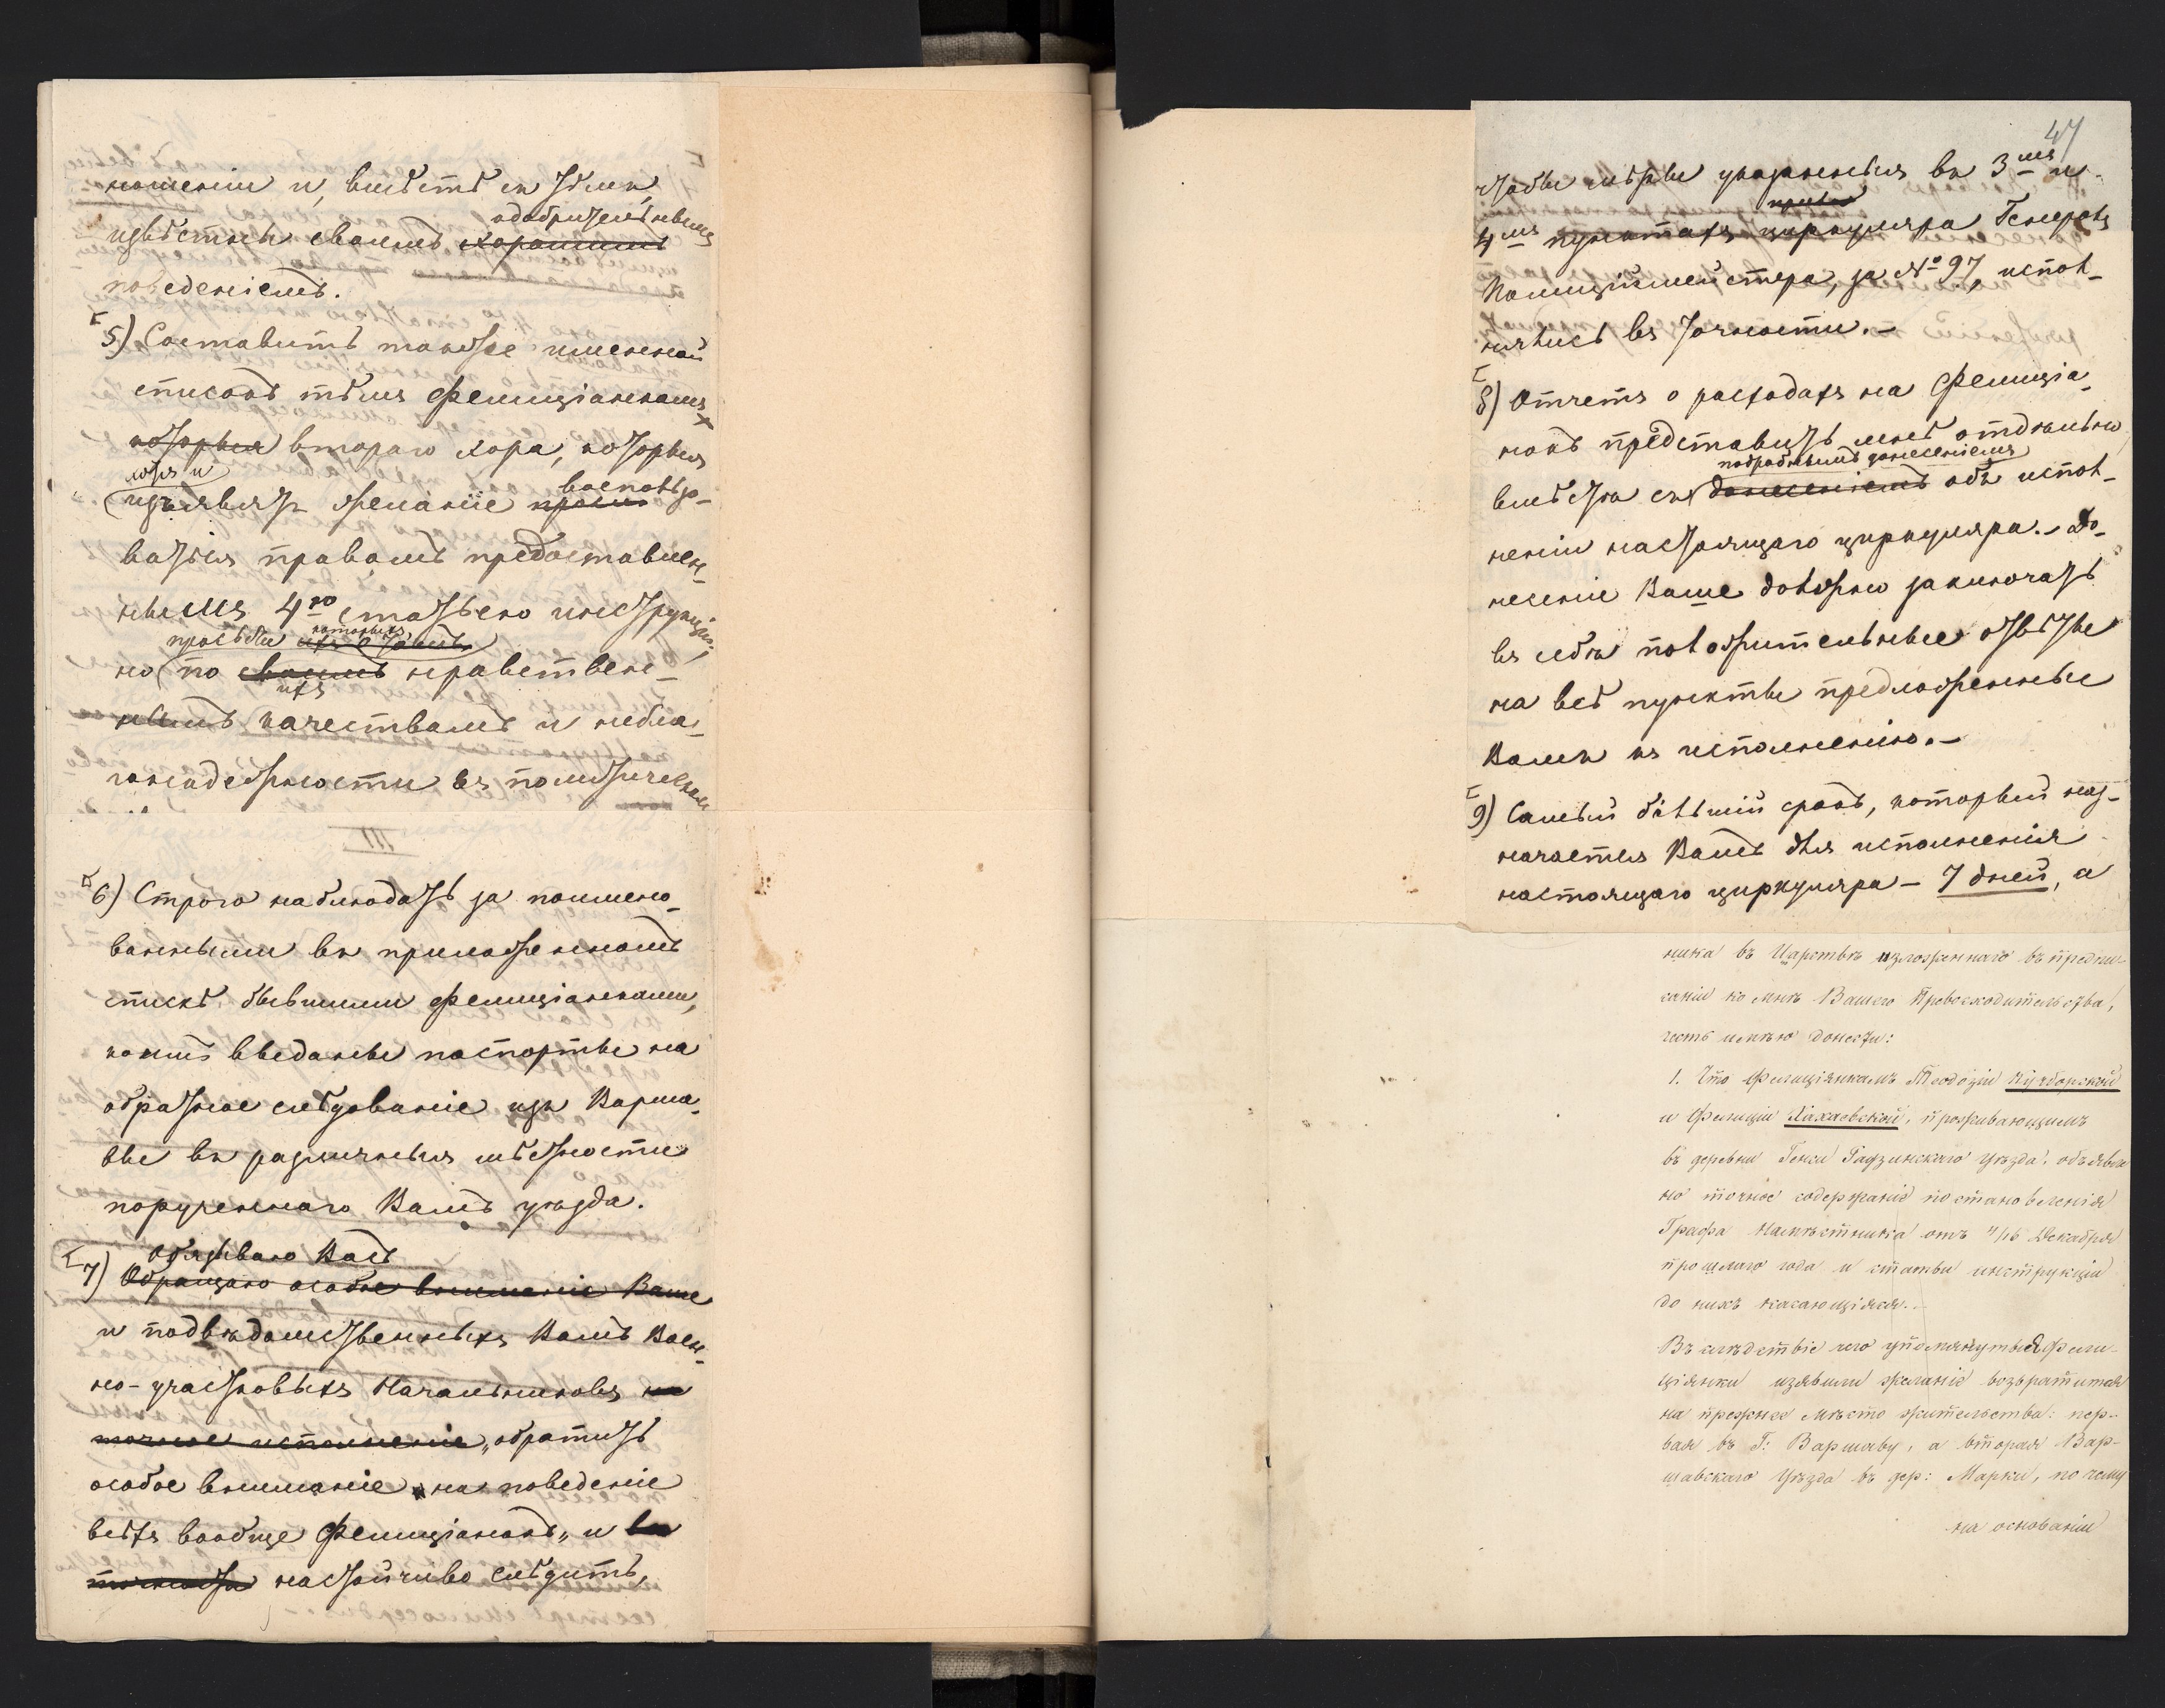 ношеніи и, вмѣстѣ съ тѣмъ,
одобрительнымъ
извѣстны своимъ хорошимъ
поведеніемъ.
5) Составить также именной
списокъ тѣмъ Фелиціанкамъ
которыя втораго хора, которыя
хотя и воспользо-
изъявятъ желаніе
ваться правомъ предоставлен-
нымъ 4ю статьею инструкціи,
просьбы которыхъ
но по своимъ нравствен-
ихъ
нымъ качествамъ и небла-
гонадежности въ политическом
III
6) Строго наблюдать за поимено-
ванными въ приложенномъ
спискѣ бывшими Фелиціанками,
коимъ выданы паспорты на
обратное слѣдованіе изъ Варша-
вы въ различныя мѣстности
порученнаго Вамъ уѣзда.
Обязываю Васъ
7) Обращаю особое вниманіе Ваше
и подвѣдомственныхъ Вамъ Воен-
но-участковыхъ Начальниковъ на
точное исполненіе, обратить
особое вниманіе на поведеніе
всѣхъ вообще Фелиціанокъ, и
настойчиво слѣдить,
47
чтобы мѣры указанныя въ 3мъ и
4мъ пунктахъ циркуляра Генералъ
Полицiймейстера, за № 97, испол-
нялись въ точности.-
8) Отчетъ о расходахъ на Фелиціа-
нокъ представить мнѣ отдѣльно,
подробнымъ донесеніемъ
вмѣстѣ съ донесеніемъ объ испол-
неніи настоящаго циркуляра. - До-
несеніе Ваше должно заключать
въ себѣ положительные отвѣты
на всѣ пункты предложенные
Вамъ къ исполненію.-
9) Самый большій срокъ, который наз-
начается Вамъ для исполненія
настоящаго циркуляра - 7 дней, а
ника въ Царствѣ изложеннаго въ предпи-
саніи ко мнѣ Вашего Превосходительства,
честь имѣю донести:
1. Что Фелиціянкамъ Теодозіи
и Фелиціи Хахаевской, проживающимъ
въ деревни Генси Радзинскаго Уѣзда, объявле
но точное содержаніе постановленія
Графа Намѣстника отъ 4/16 Декабря
прошлаго года и статьи инструкціи
до нихъ касающіяся.-
Въ слѣдствіе чего упомянутыя Фели-
ціянки изявили желаніе возвратиться
на прежнее мѣсто жительства: пер-
вая въ Г: Варшаву, а вторая Вар-
шавскаго Уѣзда въ дер: Марки, по чему
на основаніи